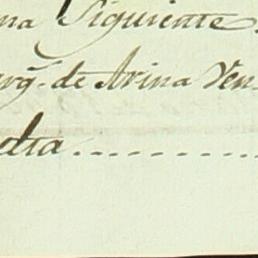 na Siguiente.
arg. de Arina Ven
dia..............